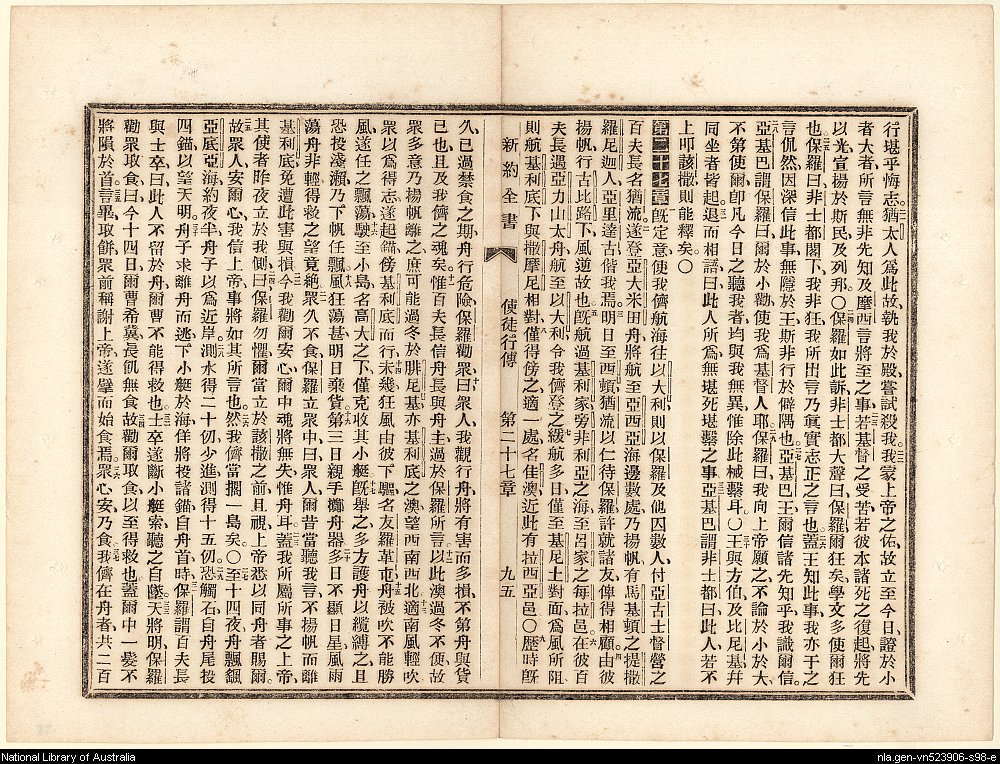 行堪乎悔志猶太人爲此故執我於殿嘗試殺我我蒙上帝之佑故立至今日證於小
者大者所言無非先知及摩西言將至之事若基督之受苦若彼本諸死之復起將先
以光宣揚於斯民及列邦〇保羅如此訴非士都大聲曰保羅爾狂矣學文多使爾狂
也保羅曰非士都閣下我非狂我所出言乃眞實志正之言也蓋王知此事我亦于之
言侃然因深信此事無隱於王斯非行於僻隅也亞基巴王爾信諸先知乎我識爾信
亞基巴謂保羅曰爾於小勸使我爲基督人耶保羅曰我向上帝願之不論於小於大
不第使爾卽凡今日之聽我者均與我無異惟除此械繫耳〇王與方伯及比尼基幷
同坐者皆起退而相語曰此人所爲無堪死堪繫之事亞基巴謂非士都曰此人若不
上叩該撒則能釋矣〇
第二十七章旣定意使我儕航海往以大利則以保羅及他囚數人付亞古士督營之
百夫長名猶流遂登亞大米田舟將航至亞西亞海邊數處乃揚帆有馬基頓之提撒
羅尼迦人亞里達古偕我焉明日至西頓猶流以仁待保羅許就諸友俾得相顧由彼
揚帆行古比路下風逆故也旣航過基利家旁非利亞之海至呂家之每拉邑在彼百
夫長遇亞力山太舟航至以大利令我儕登之緩航多日僅至基尼土對面爲風所阻
則航基利底下與撒摩尼相對僅得傍之適一處名佳澳近此有拉西亞邑〇歷時旣
新約全書 使徒行傳 第二十七章 九五
久已過禁食之期舟行危險保羅勸衆曰衆人我觀行舟將有害而多損不第舟與貨
已也且及我儕之魂矣惟百夫長信舟長與舟主過於保羅所言以此澳過冬不便故
衆多意乃揚帆離之庶可能過冬於腓尼基亦基利底之澳望西南西北適南風輕吹
衆以爲得志遂起錨傍基利底而行未幾狂風由彼下颺名友羅革屯舟被吹不能勝
風遂任之飄蕩駛至小島名高大之下僅克收其小艇旣舉之多方護舟以纜縛之且
恐投淺瀨乃下帆任飄風狂蕩甚明日棄貨第三日親手擲舟器多日不顯日星風雨
蕩舟非輕得救之望竟絶衆久不食保羅立衆中曰衆人爾昔當聽我言不揚帆而離
基利底免遭此害與損今我勸爾安心爾中魂將無失惟舟耳蓋我所屬所事之上帝
其使者昨夜立於我側曰保羅勿懼爾當立於該撒之前且視上帝悉以同舟者賜爾
故衆人安爾心我信上帝事將如其所言也然我儕當擱一島矣〇至十四夜舟飄颻
亞底亞海約夜半舟子以爲近岸測水得二十仞少進測得十五仞恐觸石自舟尾投
四錨以望天明舟子求離舟而逃下小艇於海佯將投諸錨自舟首時保羅謂百夫長
與士卒曰此人不留於舟爾曹不能得救也士卒遂斷小艇索聽之自墜天將明保羅
勸衆取食曰今十四日爾曹希冀長飢無食故勸爾取食以至得救也蓋爾中一髮不
將隕於首言畢取餅衆前稱謝上帝遂擘而始食焉衆心安乃食我儕在舟者共二百
National Library of Australia
nla.gen-vn523906-s98-e